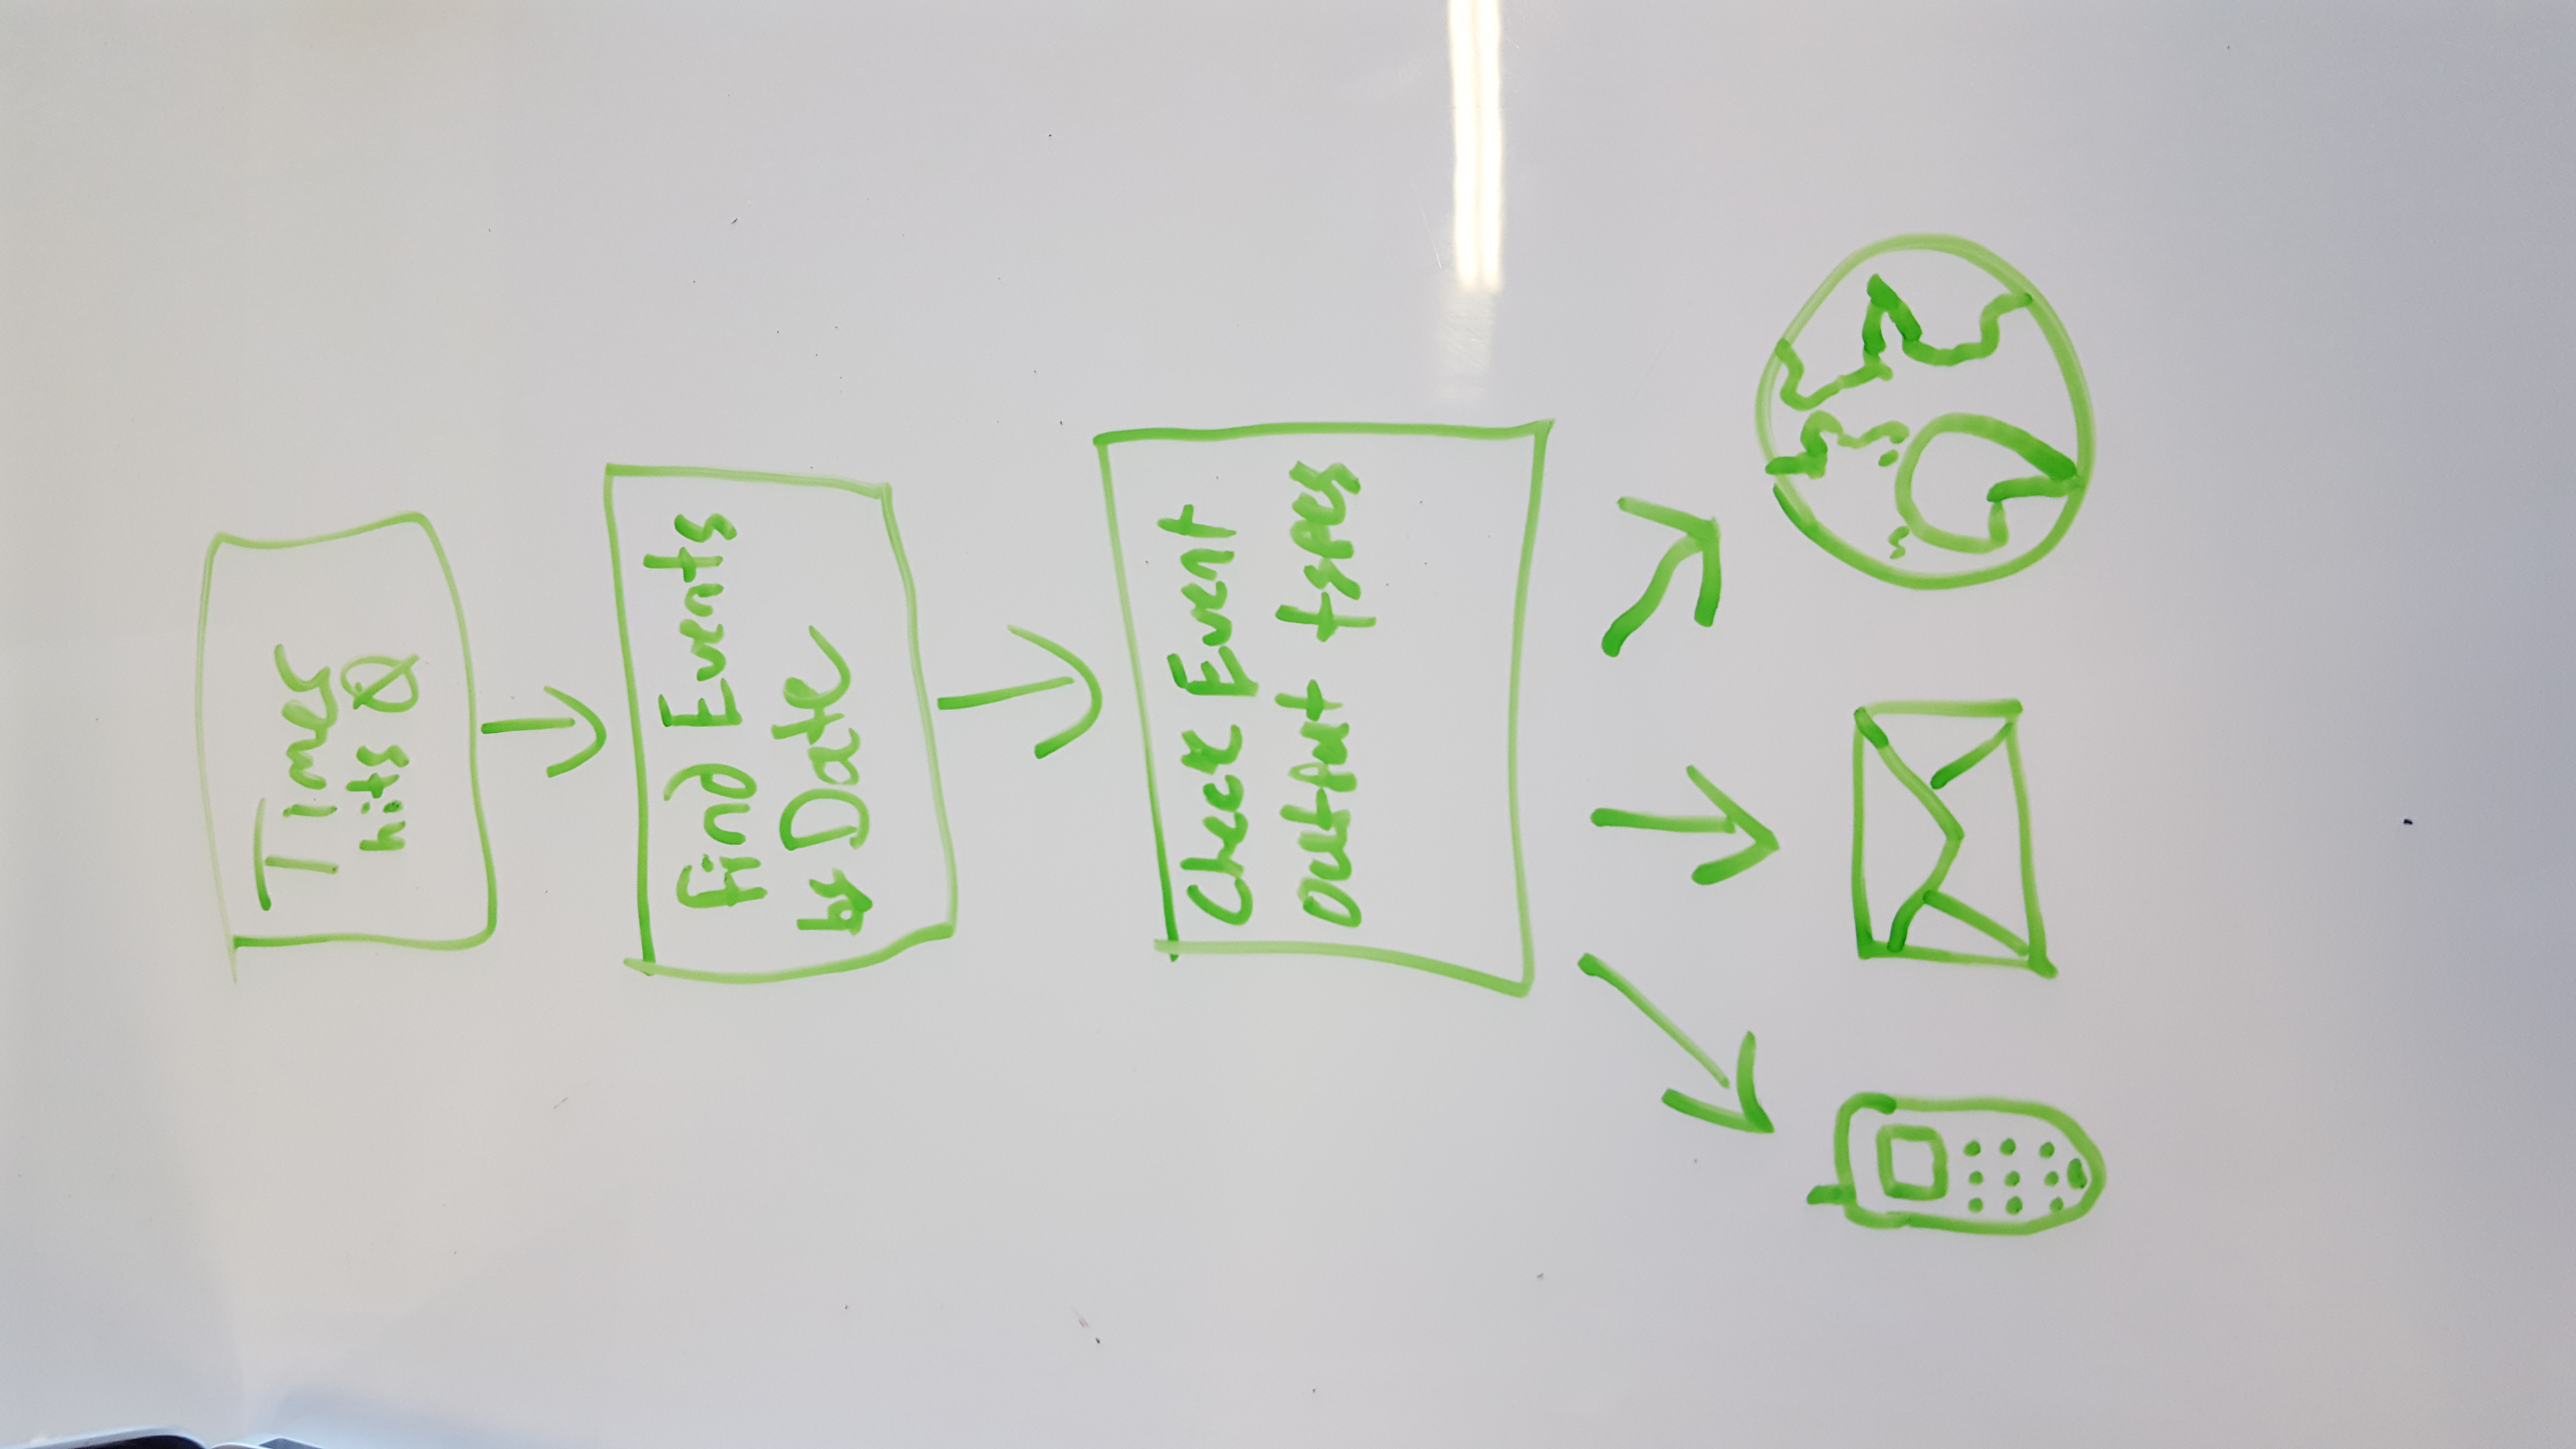 Timer
hits 0
Find Events
by Date
Check Event
output types